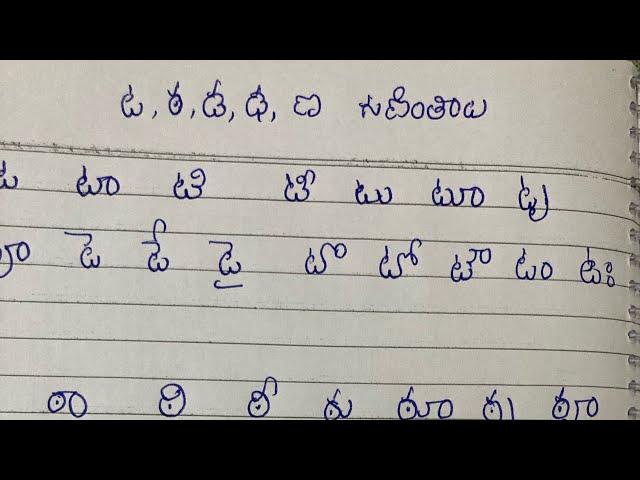 ట, ఠ, డ, ఢ, ణ గుణింతాలు
ట టా టి టీ టు టూ టృ
టౄ టె టే టై టొ టో టౌ టం టః
ఠా ఠి ఠీ ఠు ఠూ ఠృ ఠౄ